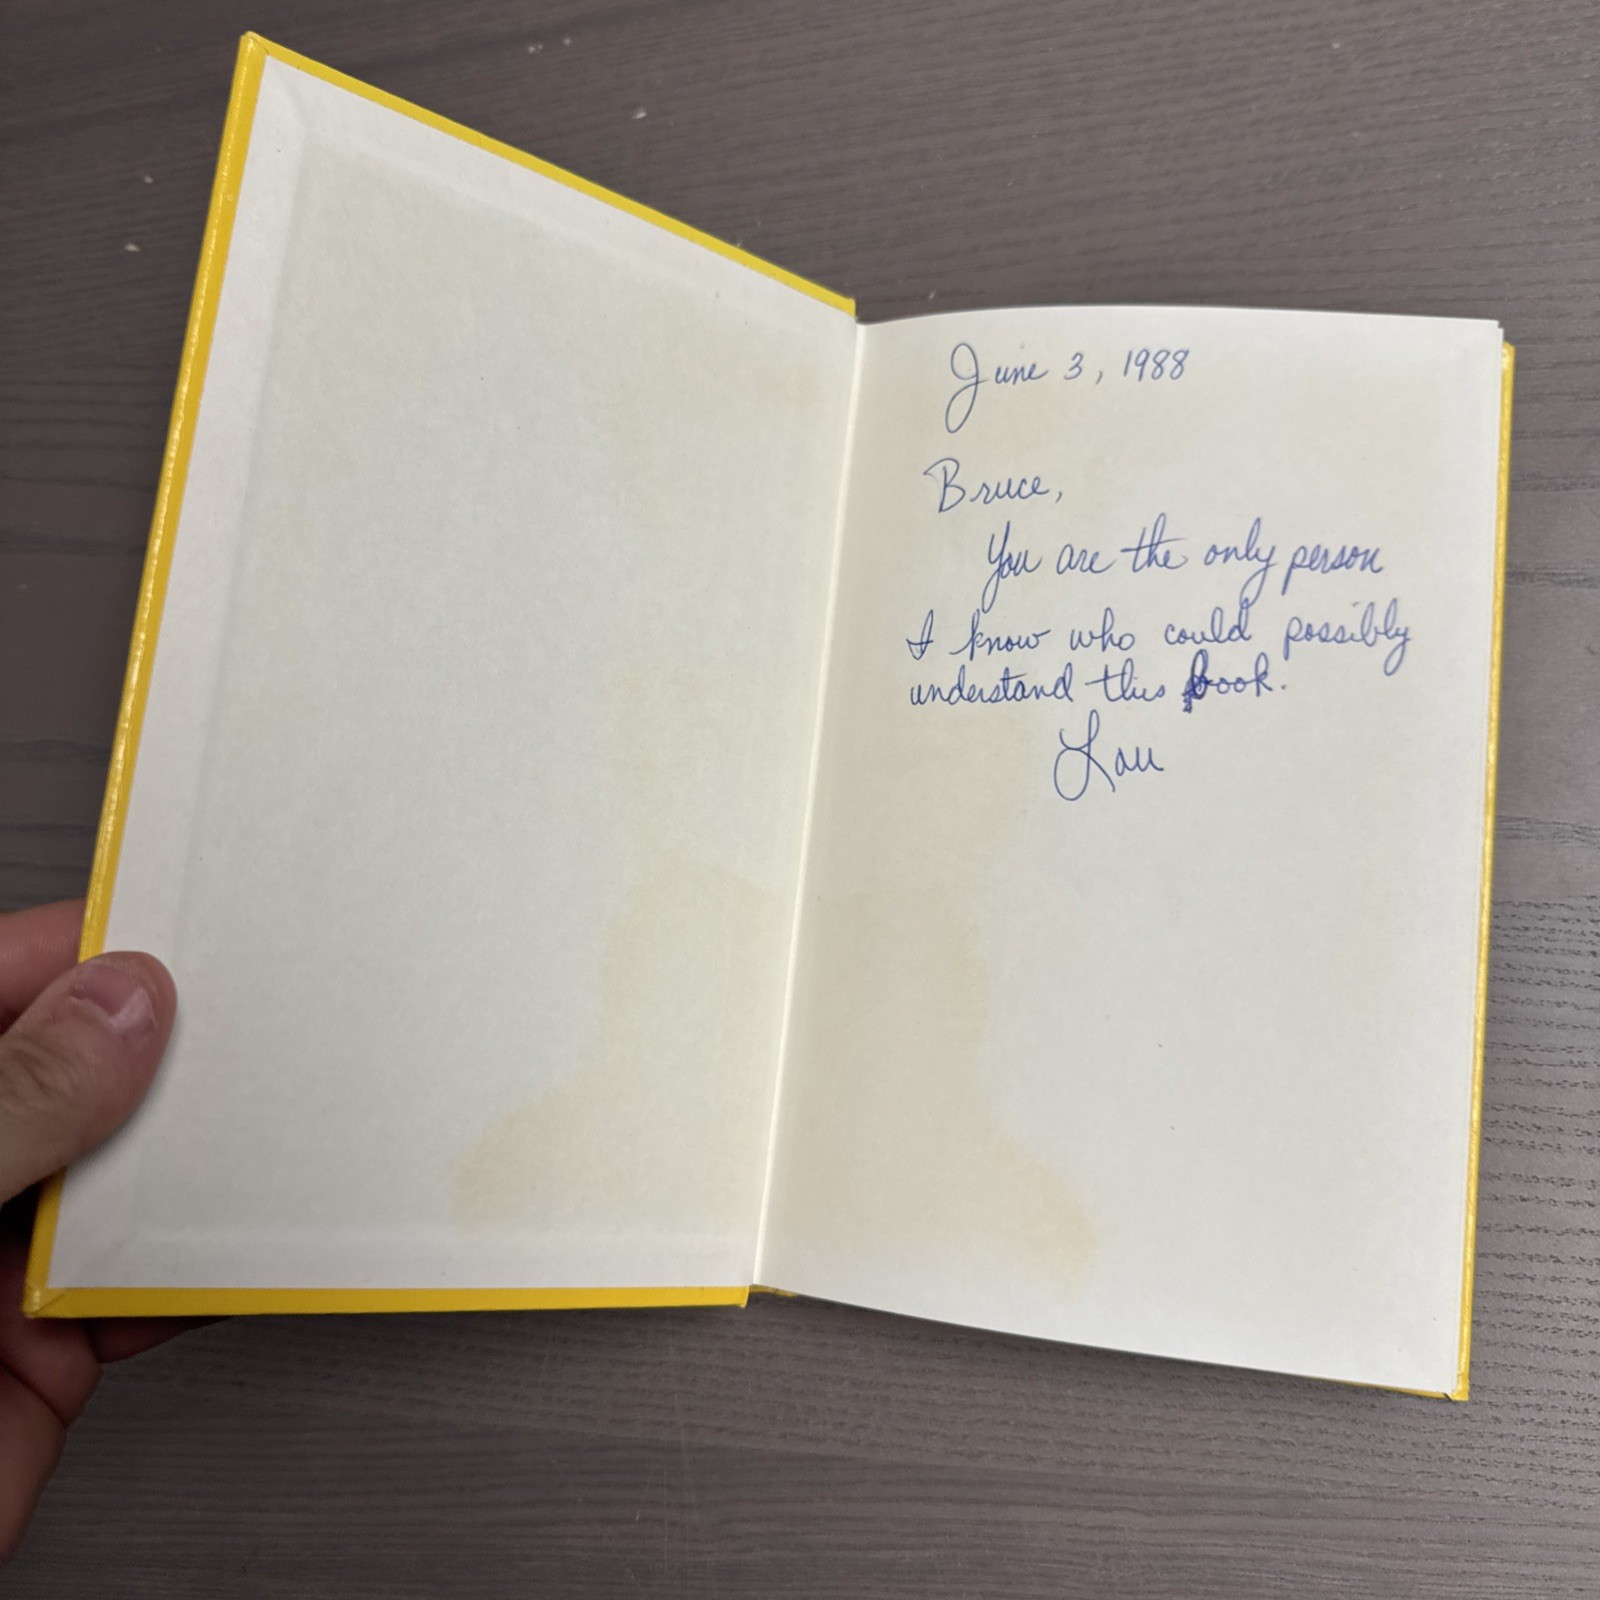 June 3, 1988
Bruce,
You are the only person
I know who could possibly
understand this book.
Lou